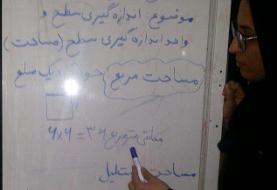 موضوع اندازه گیری سطح و
واحد اندازه گیری سطح (مساحت)
مساحت مربع یک ضلع
۶×۶=۳۶ سانتی متر مربع
مساحت مستطیل